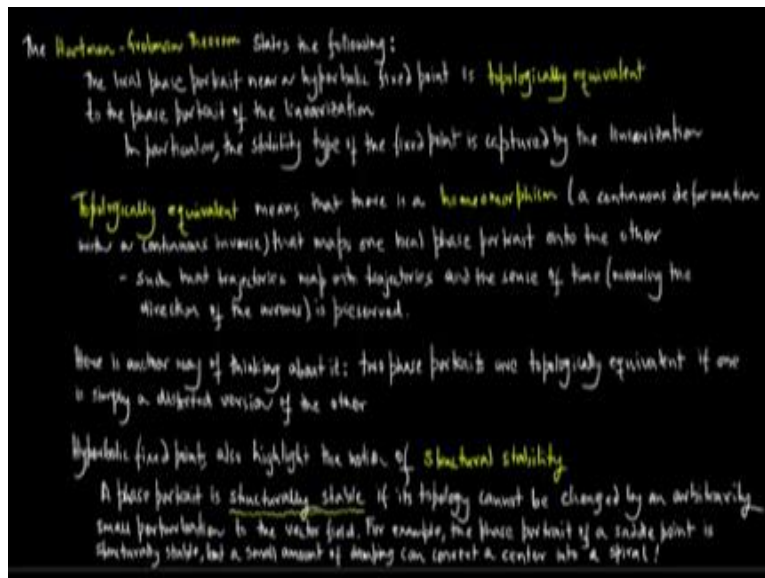 The Hartman-Grobman Theorem states the following:
The local phase portrait near a hyperbolic fixed point is topologically equivalent
to the phase portrait of the linearization
In particular, the stability type of the fixed point is captured by the linearization
Topologically equivalent means that there is a homeomorphism (a continuous deformation
with a continuous inverse) that maps one local phase portrait onto the other
- such that trajectories map onto trajectories and the sense of time (meaning the
direction of the arrows) is preserved.
Here is another way of thinking about it: two phase portraits are topologically equivalent if one
is simply a distorted version of the other
Hyperbolic fixed points also highlight the notion of structural stability
A phase portrait is structurally stable if its topology cannot be changed by an arbitrarily
small perturbation to the vector field. For example, the phase portrait of a saddle point is
structurally stable, but a small amount of damping can convert a center into a spiral!